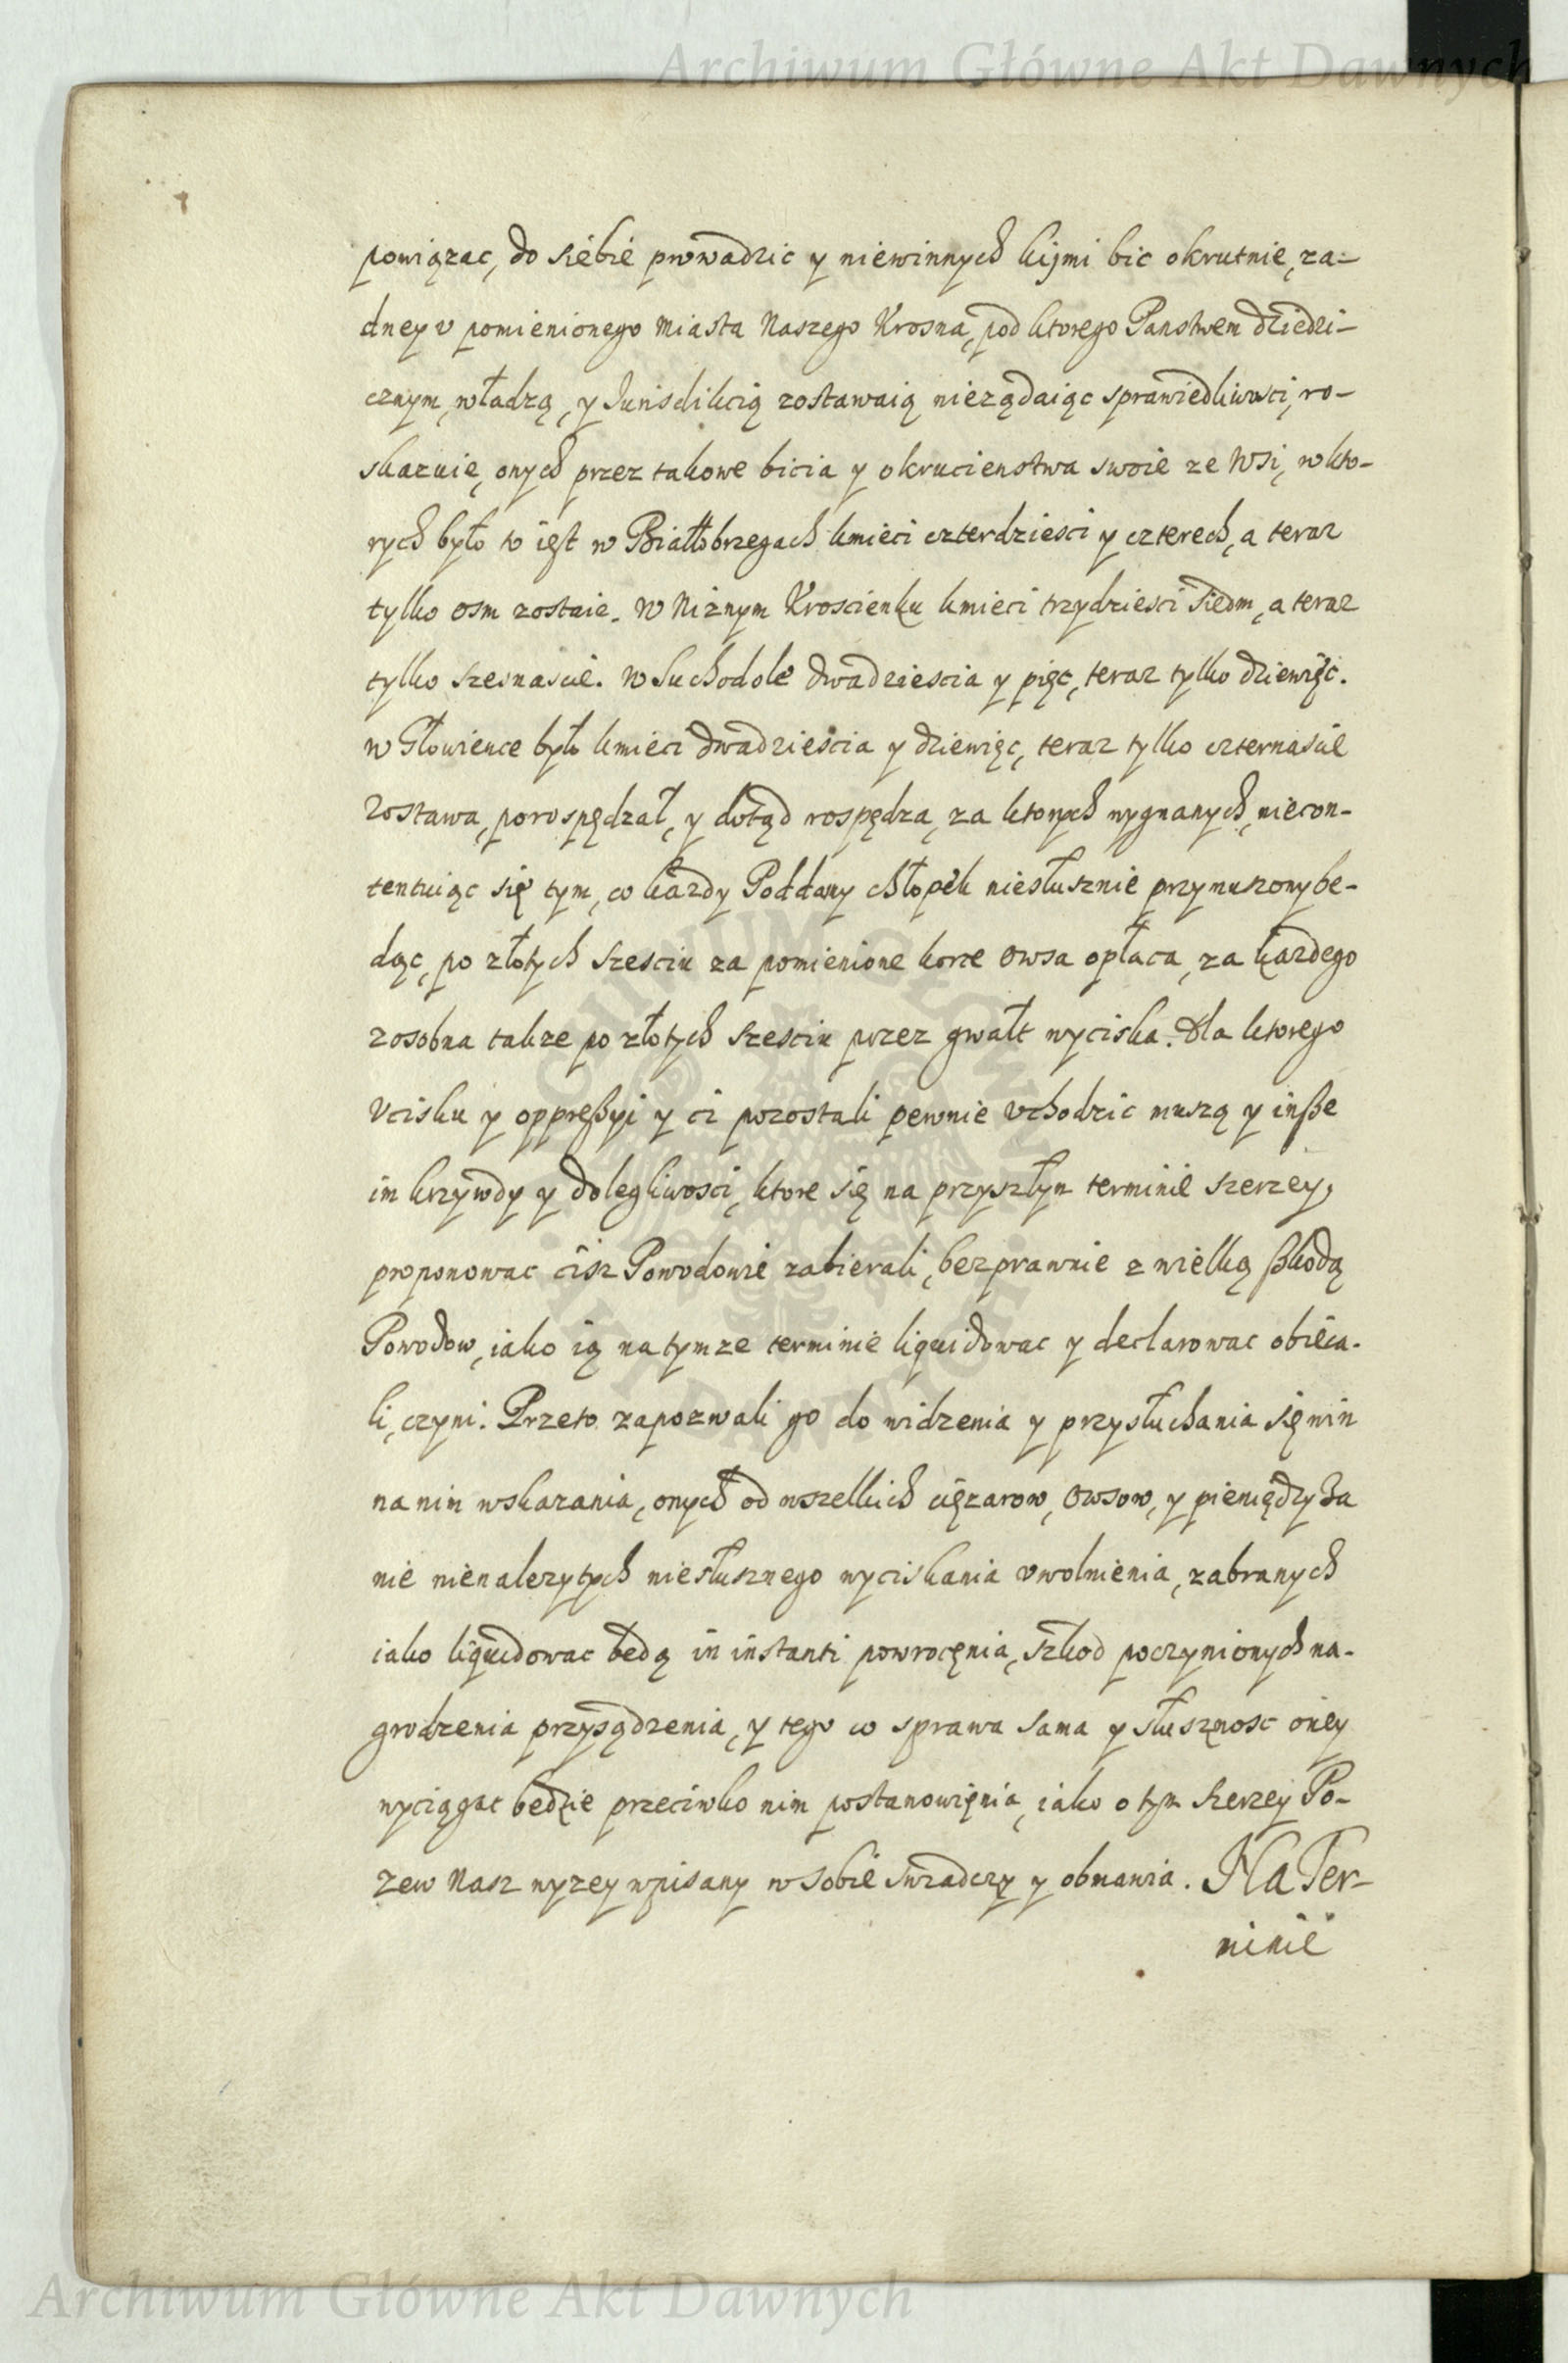 Archiwum Główne Akt Dawnych
powiązac, do siebie prowadzic y niewinnych kijmi bic okrutnie, za-
dney v pomienionego Miasta Naszego Krosna, pod ktorego Panstwem dziedzi-
cznym, władzą, y Jurisdikcią zostawaią nieządaiąc sprawiedliwosci, ro-
skazuię, onych przez takowe bicia y okrucienstwa swoie ze Wsi, w kto-
rych było to iest w Białobrzegach kmieci czterdziesci y czterech, a teraz
tylko osm zostaie. W Niznym Kroscienku kmieci trzydziesci siedm, a teraz
tylko szesnascie. W Suchodole dwadziescia y pięc, teraz tylko dziewięc.
w Głowience było kmieci dwadziescia y dziewięc, teraz tylko czternascie
zostawa, porospędzał, y dotąd rospędza, za ktorych wygnanych, niecon-
tentuiąc się tym, co kazdy Poddany chłopek niesłusznie przymuszony be-
dąc, po złotych szesciu za pomienione korce owsa opłaca, za kazdego
zosobna takze po złotych szesciu przez gwałt wyciska. Dla ktorego
vcisku y oppreßyi y ci pozostali pewnie vchodzic muszą y inße
im krzywdy y dolegliwosci, ktore się na przyszłym terminie szerzey,
proponowac cisz Powodowie zabierali, bezprawnie z wielką ßkodą
Powodow, iako ią na tymze terminie liquidowac y declarowac obieca-
li, czyni. Przeto zapozwali go do widzenia y przysłuchania się win
na nim wskazania, onych od wszelkich cięzarow, owsow, y pieniędzy za
nie nienalezytych niesłusznego wyciskania vwolnienia, zabranych
iako liquidowac będą in instanti powrocęnia, szkod poczynionych na-
grodzenia przysądzenia, y tego co sprawa sama y słusznosc oney
wyciągac będzie przeciwko nim postanowięnia, iako o tym szerzey Po-
zew Nasz wyzey wpisany w sobie swiadczy y obmawia. Na Ter-
minie
Archiwum Główne Akt Dawnych